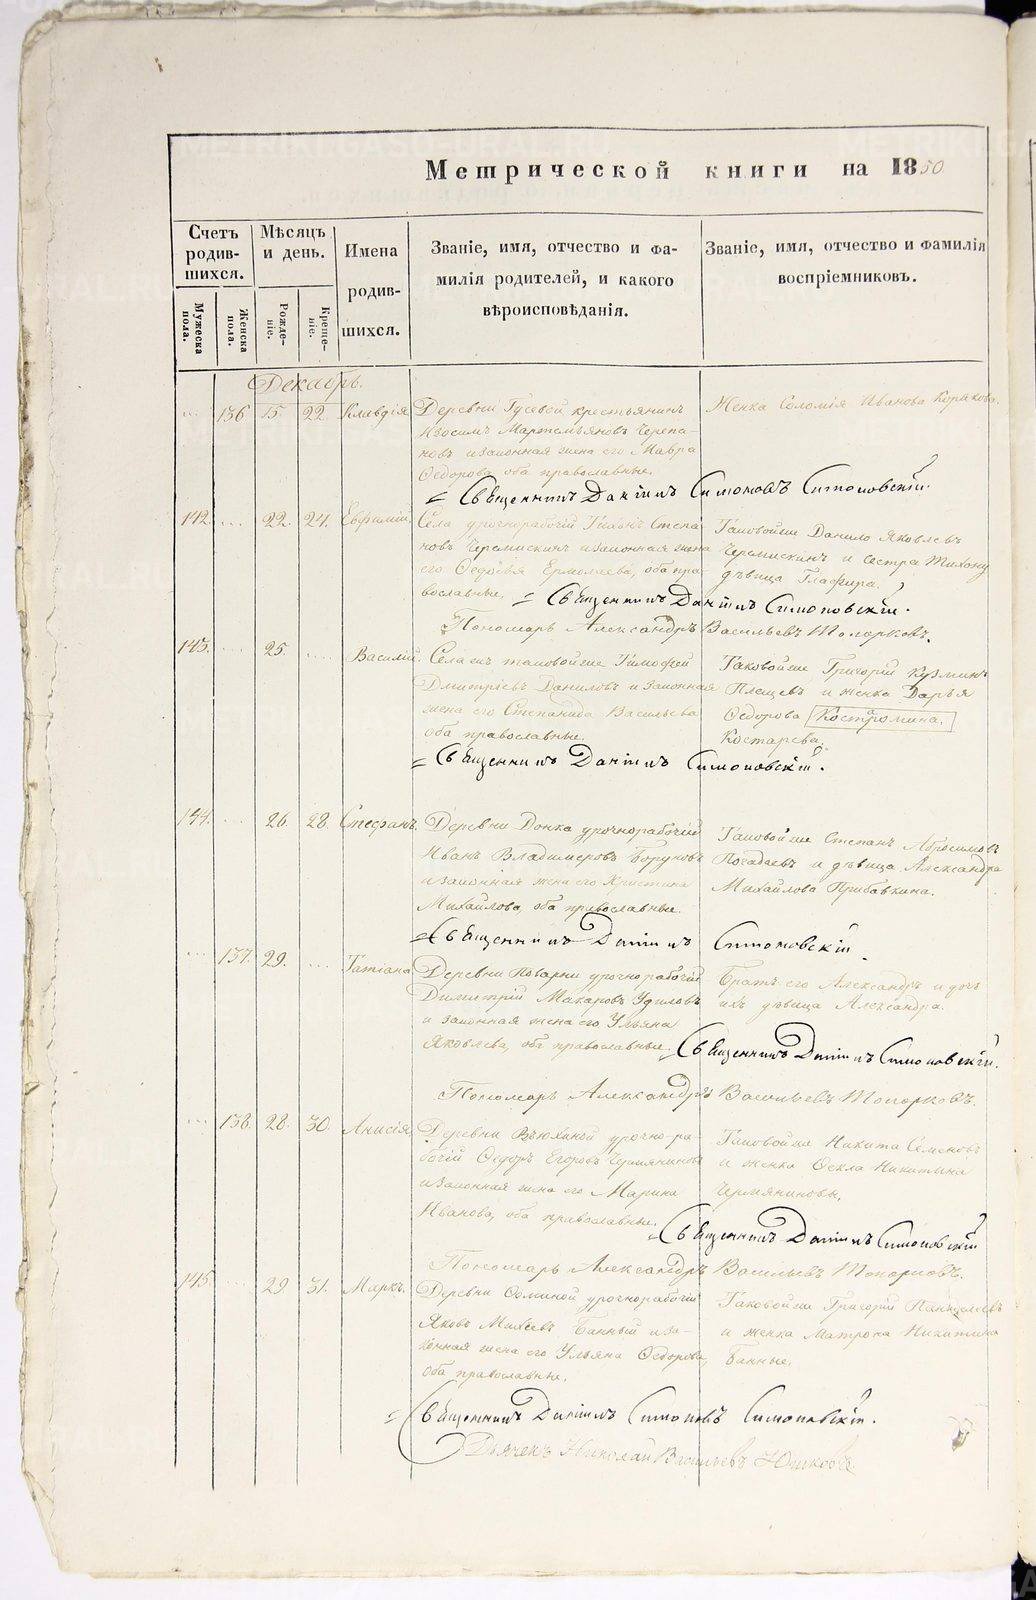 Метрической книги на 1850
Счетъ родившихся.
Мѣсяцъ и день.
Имена родившихся.
Званіе, имя, отчество и фамилія родителей, и какого вѣроисповѣданія.
Званіе, имя, отчество и фамилія воспріемниковъ.
Мужеска пола.
Женска пола.
Рожденіе.
Крещеніе.
Декабрь.
136 15. 22. Клавдія
Деревни Гусевой крестьянинъ
Изосимъ Мартемьяновъ Черепа-
новъ и законная жена его Мавра
Ѳедорова, оба православные.
Женка Соломія Иванова
Священникъ Даніилъ Симоновъ Симоновскій.
142. 22. 24. Евфимій.
Села урочнорабочій Степа-
новъ Черемискинъ и законная жена
его Ѳедосья Ермолаева, оба пра-
вославные.
Таковой же Данило Яковлевъ
Черемискинъ и сестра
дѣвица Глафира.
Священникъ Даніилъ Симоновскій.
Пономарь Александръ Васильевъ Топорковъ.
143. 25. Василій.
Села таковой же Тимофей
Дмитріевъ Даниловъ и законная
жена его Степанида Васильева
оба православные.
Таковой же Григорій Кузминъ
Плещевъ и женка Дарья
Ѳедорова Костромина.
Костарева.
Священникъ Даніилъ Симоновскій.
144. 26. 28. Стефанъ.
Деревни урочнорабочій
Иванъ Владимеровъ
и законная жена его Христина
Михайлова, оба православные.
Таковой же Степанъ Абросимовъ
и дѣвица Александра
Михайлова Прибавкина.
Священникъ Даніилъ Симоновскій.
137. 29. Татіана
Деревни урочнорабочій
Димитрій Макаровъ Удиловъ
и законная жена его Ульяна
Яковлева, оба православные.
Братъ его Александръ и дочь
ихъ дѣвица Александра.
Священникъ Даніилъ Симоновскій.
Пономарь Александръ Васильевъ Топорковъ.
138. 28. 30. Анисія
Деревни урочно-ра-
бочій Ѳедоръ Егоровъ Черемяниновъ
и законная жена его Марина
Иванова, оба православные.
Таковой же Никита Семеновъ
и женка Ѳекла Никитина
Священникъ Даніилъ Симоновскій
Пономарь Александръ Васильевъ Топорковъ.
145. 29. 31. Маркъ.
Деревни урочнорабочій
Яковъ Михеевъ Банный и за-
конная жена его Ульяна Ѳедорова,
оба православные.
Таковой же Григорій Пантелеевъ
и женка Матрона Никитина
Банные.
Священникъ Даніилъ Симоновъ Симоновскій.
Дьячекъ Николай Васильевъ Юшковъ